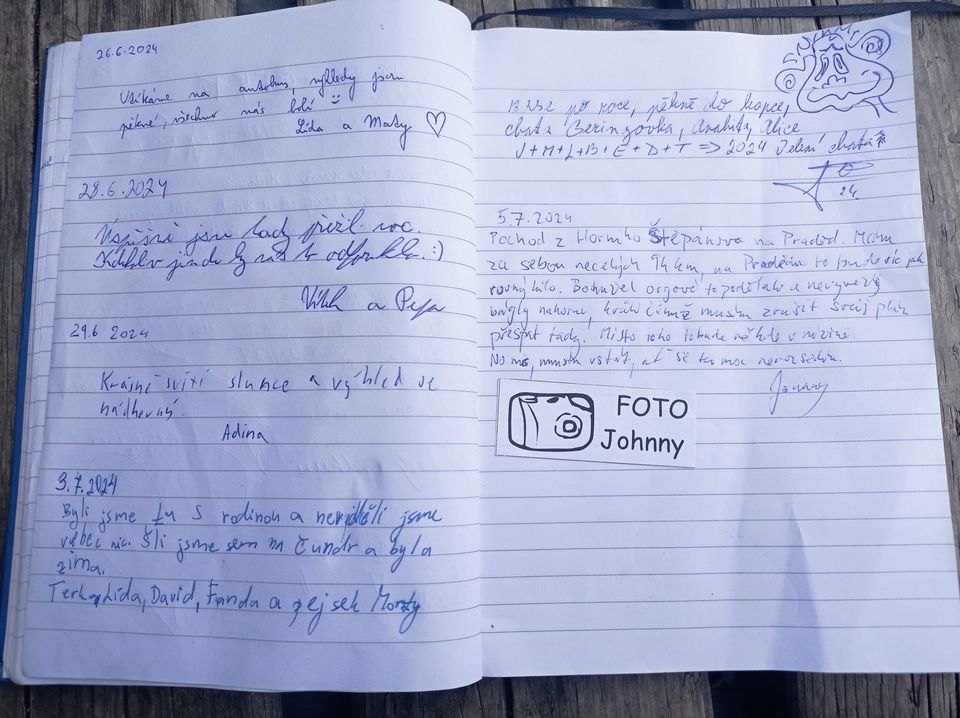 26.6.2024
Utíkáme na autobus, výhledy jsou
pěkné, všechno nás bolí
Lída a Maty
28.6.2024
Úspěšně jsme tady přežili noc.
a Pepa
29.6 2024
Krásně svítí slunce a výhled je
nádherný.
Adina
3.7.2024
Byli jsme tu s rodinou a neviděli jsme
vůbec nic. Šli jsme sem na čundr a byla
zima.
Terka, Lída, David, Fanda a pejsek Monty
po roce, pěkně do kopce,
chata Beringovka, Alice
J+M+L+B+E+D+T => 2024 Jelení chata
24.
5.7.2024
Pochod z Horního Štěpánova na Praděd. Mám
za sebou necelých 94 km, na Pradědu to bude víc jak
rovný kilo. Bohužel orgové to podělali a nevyvezli
bágly nahoru, kvůli čemuž musím zrušit svůj plán
přespat tady. Místo toho to bude někde v nížině.
No nic, musím vstát, ať se tu moc nerozsedím.
FOTO
Johnny